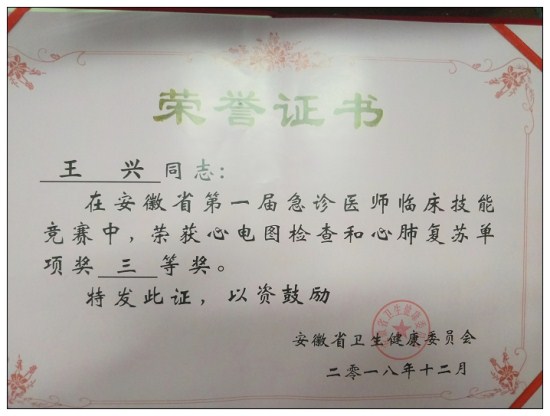 荣誉证书
王 兴 同志：
在安徽省第一届急诊医师临床技能
竞赛中，荣获心电图检查和心肺复苏单
项奖 三 等奖。
特发此证，以资鼓励
安徽省卫生健康委员会
二零一八年十二月